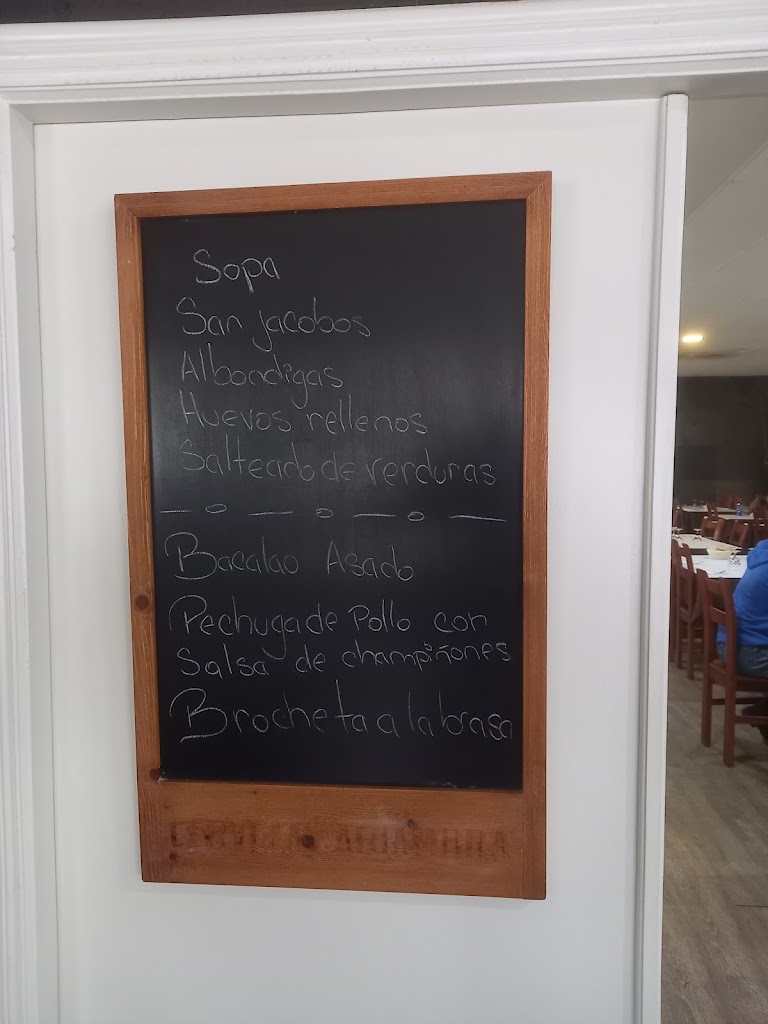 Sopa
San jacobos
Albondigas
Huevos rellenos
Salteado de verduras
Bacalao Asado
Pechuga de Pollo con
Salsa de champiñones
Brocheta a la brasa
CERVEZAS ALHAMBRA